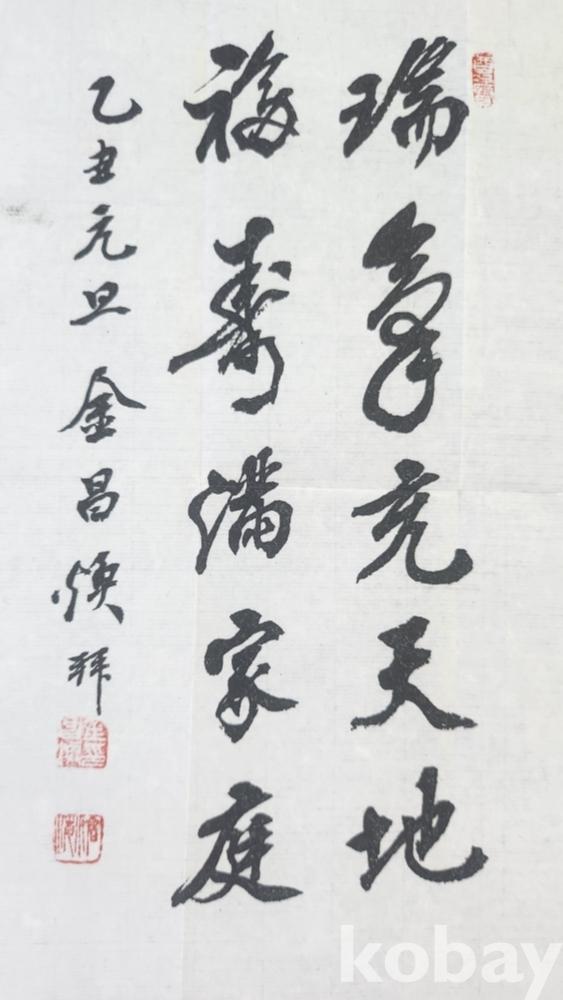 瑞氣充天地
福壽滿家庭
乙丑元旦 金昌煥 拜
kobay